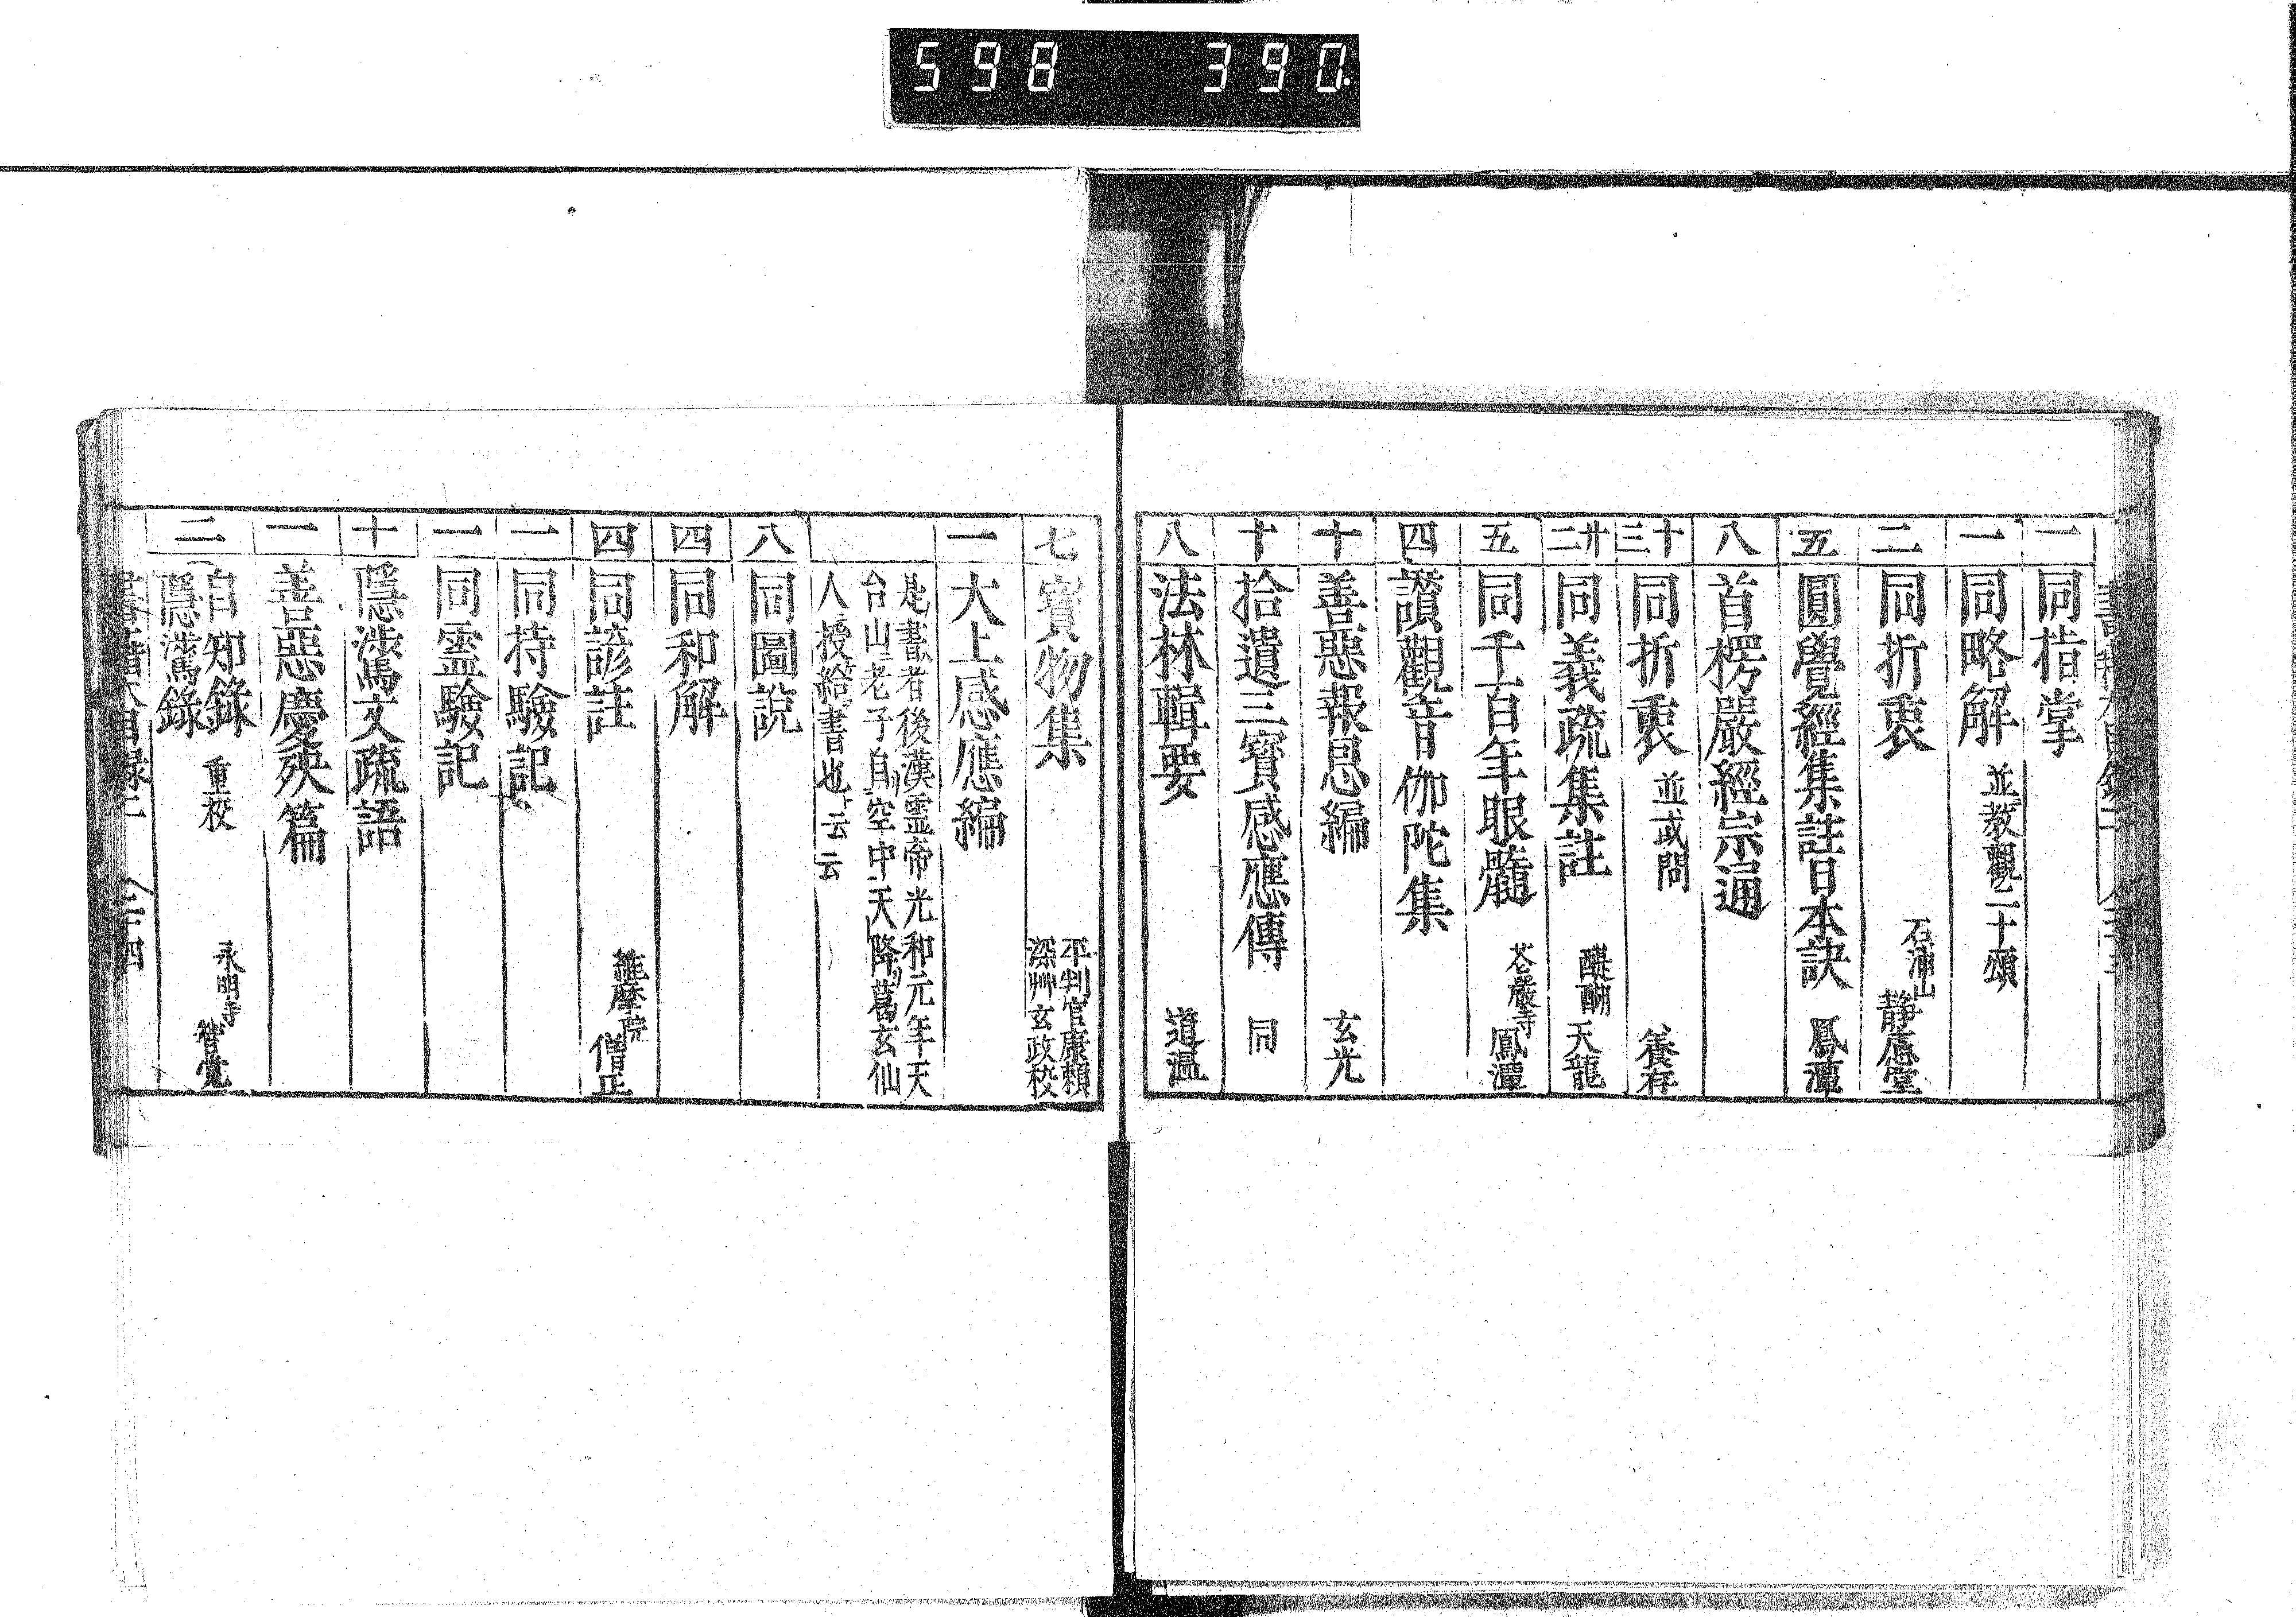 598 390.
一 同指掌
一 同略解 並教観二十頌
二 同折衷 石浦山 静慮堂
五 圓覺經集註日本訣 鳳潭
八 首楞嚴經宗通
十三 同折衷 並或問 養存
廿二 同義疏集註 醍醐 天龍
五 同千百年眼髓 鳳潭
四 讃觀音伽陀集
十 善惡報恩編 玄光
十 拾遺三寶感應傳 同
八 法林輯要 道温
七 寳物集 平判官康頼 深艸玄政校
一 大上感應編
是書者後漢霊帝光和元年天
台山老子自空中天降葛玄仙
人授給書也云云
八 同圖説
四 同和解
四 同諺註 維摩院 僧正
一 同持驗記
一 同霊驗記
十 隱隲文疏語
一 善惡慶殃篇
二 自知錄 隱隲錄 重校 永明寺 智覚
書籍大目録二 二十四